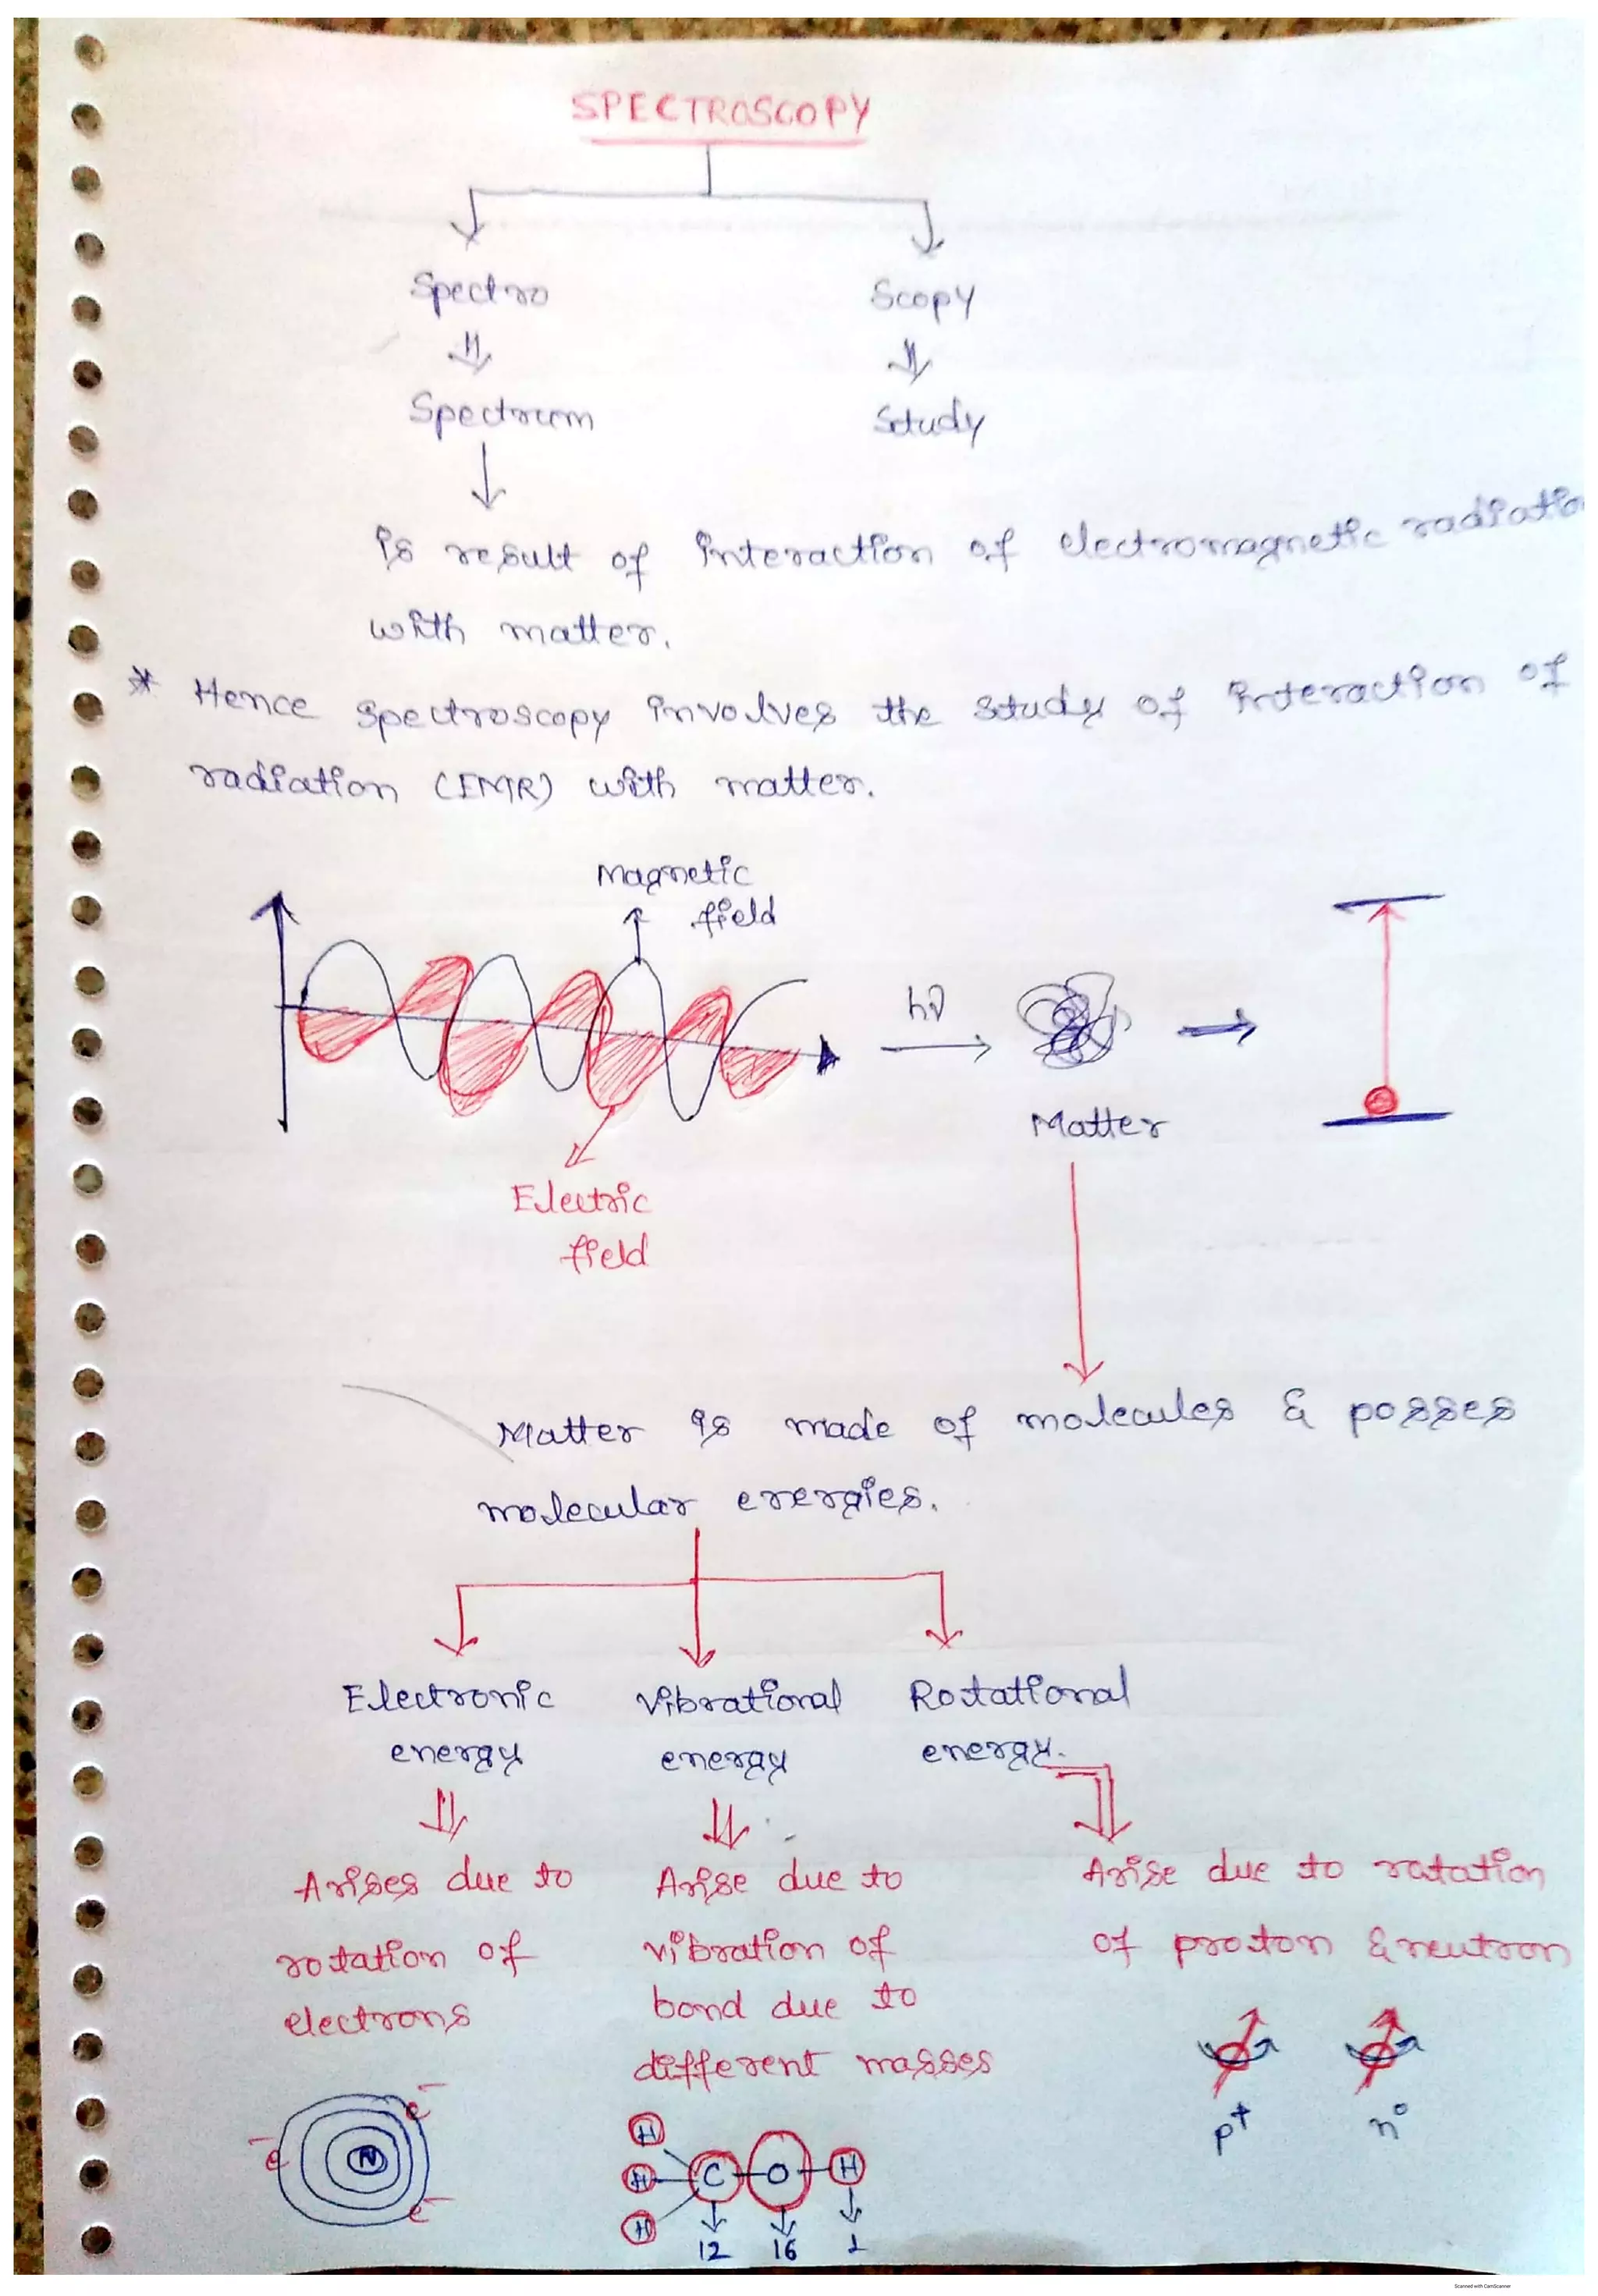 SPECTROSCOPY
Spectro
Scopy
Spectrum
Study
is result of interaction of electromagnetic radiatio
with matter.
* Hence spectroscopy involves the study of interaction of
radiation (EMR) with matter.
Magnetic
field
hν
Matter
Electric
field
Matter is made of molecules & posses
molecular energies.
Electronic
energy
Vibrational
energy
Rotational
energy.
Arises due to
rotation of
electrons
Arise due to
vibration of
bond due to
different masses
Arise due to rotation
of proton & neutron
e⁻
e⁻
N
e⁻
H
H
H
C
O
H
12
16
1
p⁺
n°
Scanned with CamScanner